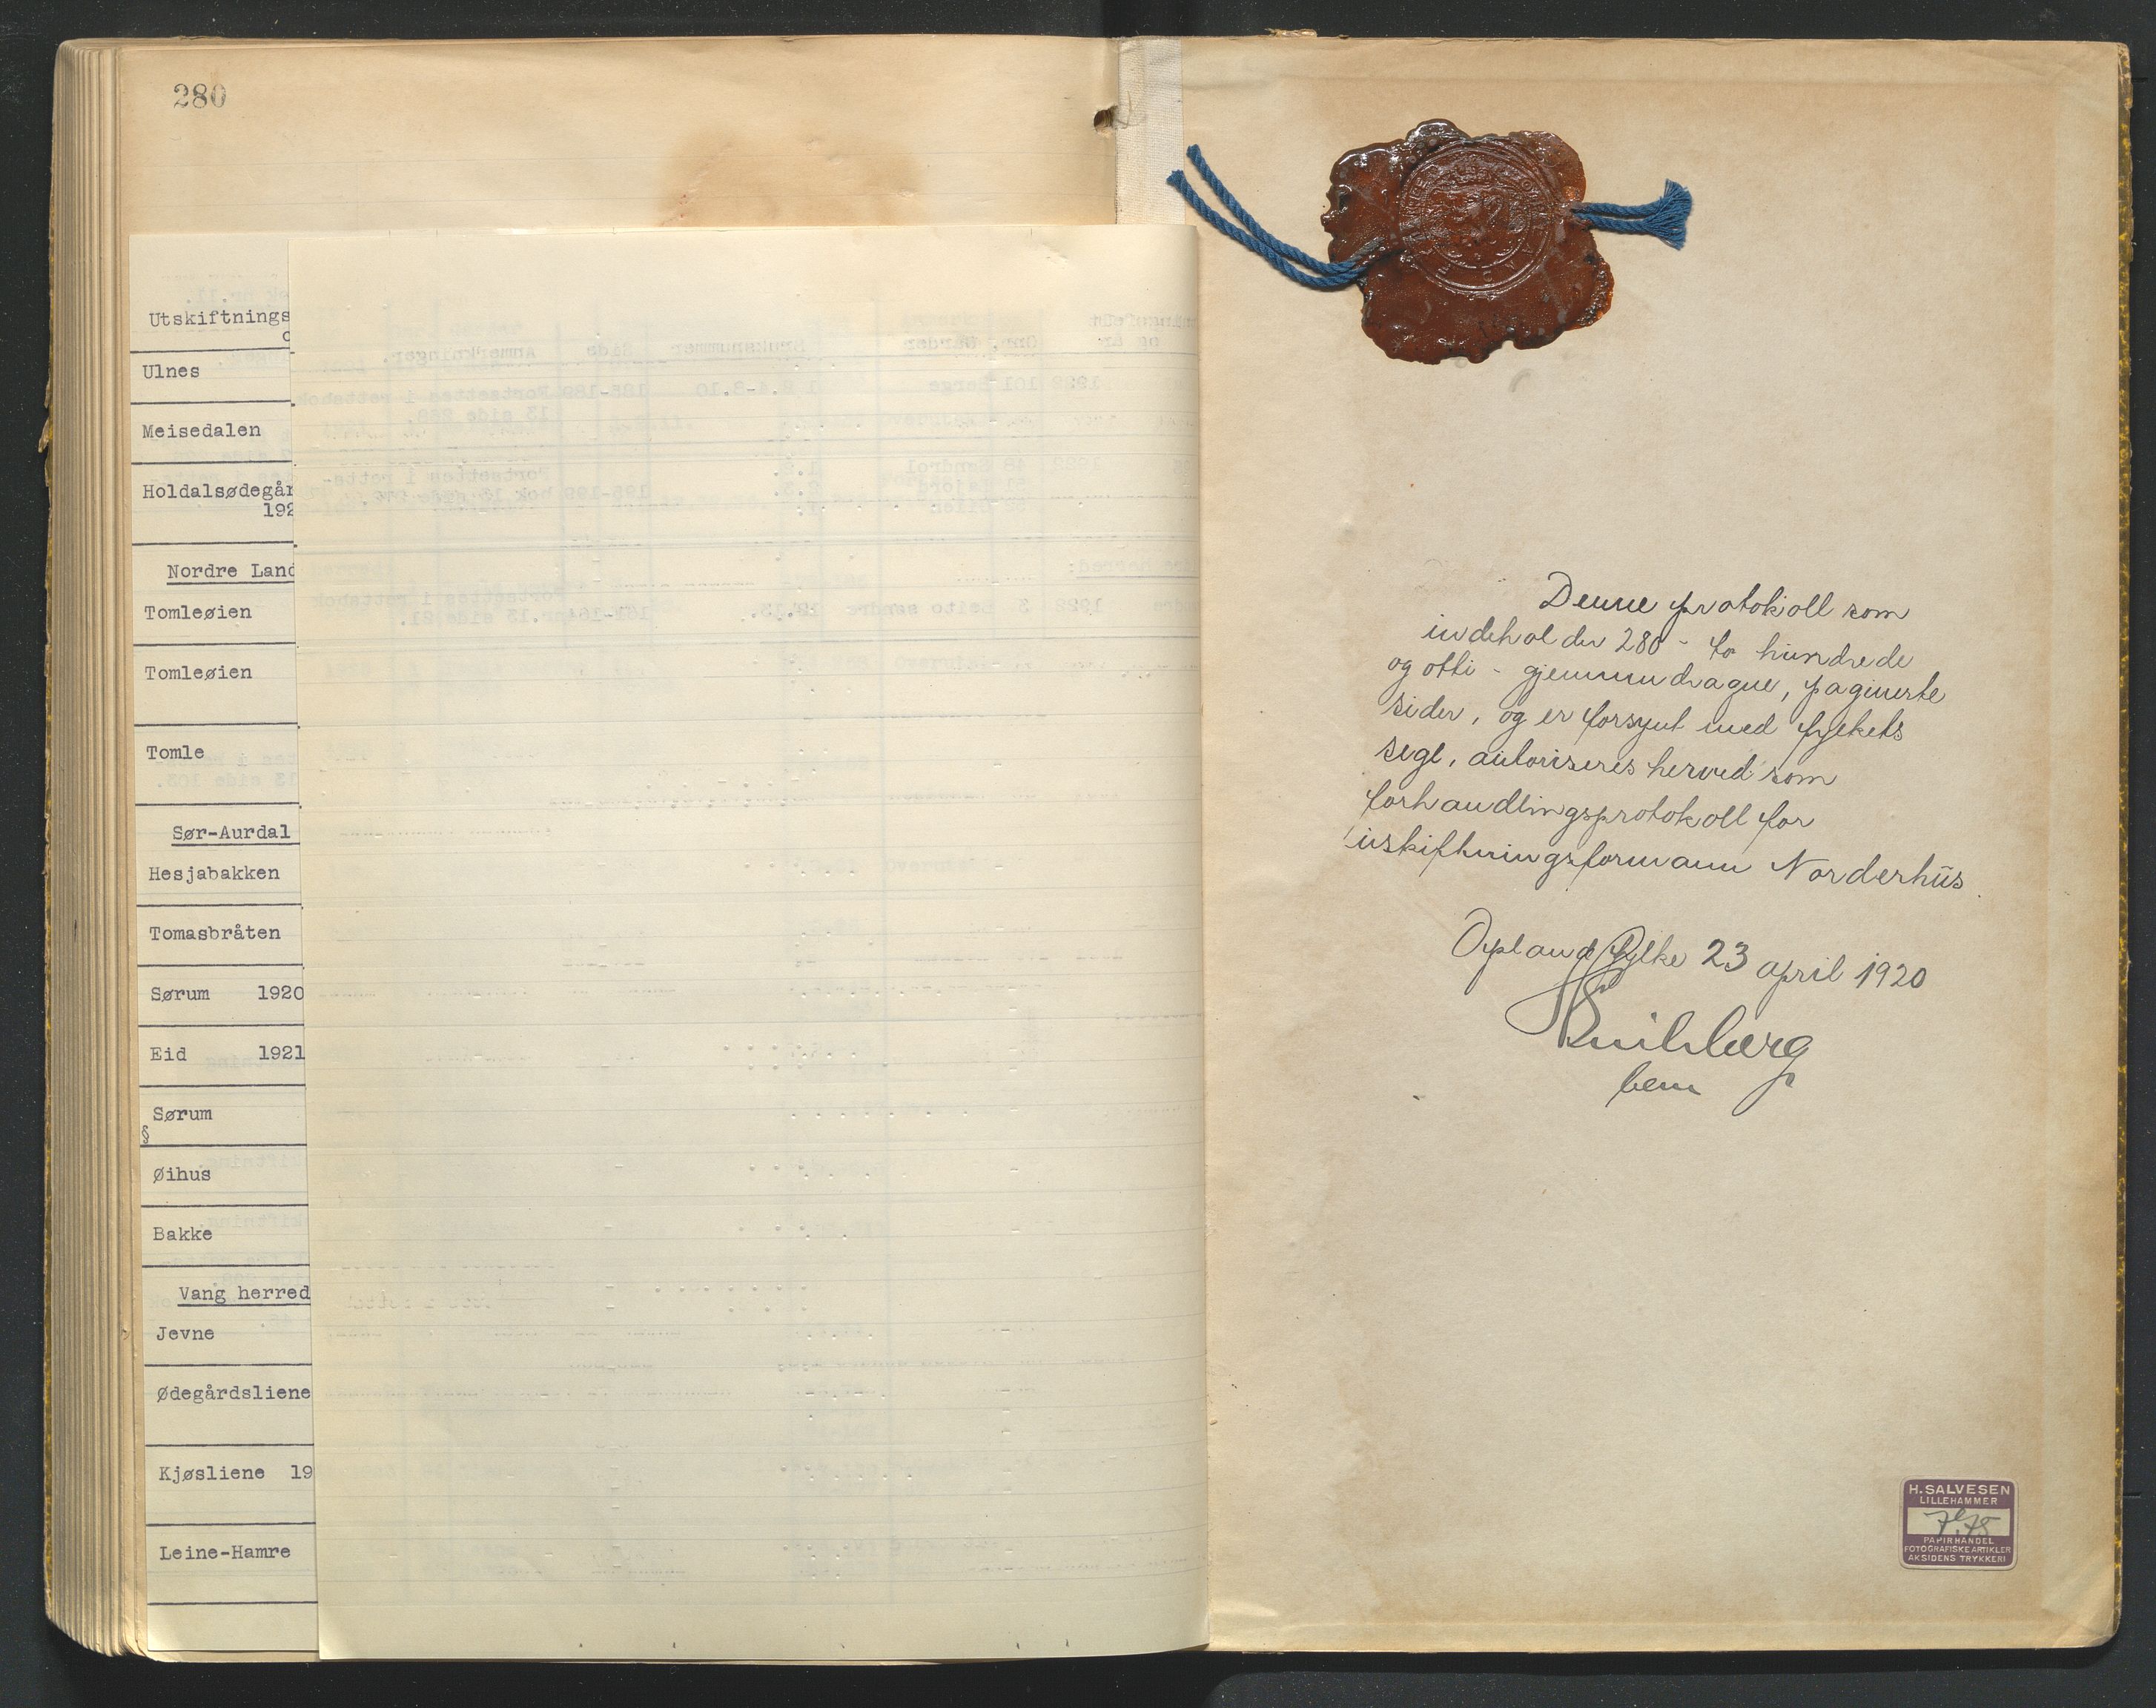 280
Utskiftnings
Ulnes
Meisedalen
Holdalsødegår
192
Nordre Land
Tomleøien
Tomleøien
Tomle
Sør-Aurdal
Hesjabakken
Tomasbråten
Sørum 1920
Eid 1921
Sørum
§
Øihus
Bakke
Vang herred
Jevne
Ødegårdsliene
Kjøsliene 19
Leine-Hamre
Denne protokoll som
indeholder 280 - to hundrede
og otti - gjennemdragne, paginerte
sider, og er forsynt med fylkets
segl, autoriseres herved som
forhandlingsprotokoll for
utskiftningsformann Norderhus.
Opland fylke 23 april 1920
H.SALVESEN
LILLEHAMMER
PAPIRHANDEL
FOTOGRAFISKE ARTIKLER
AKSIDENS TRYKKERI